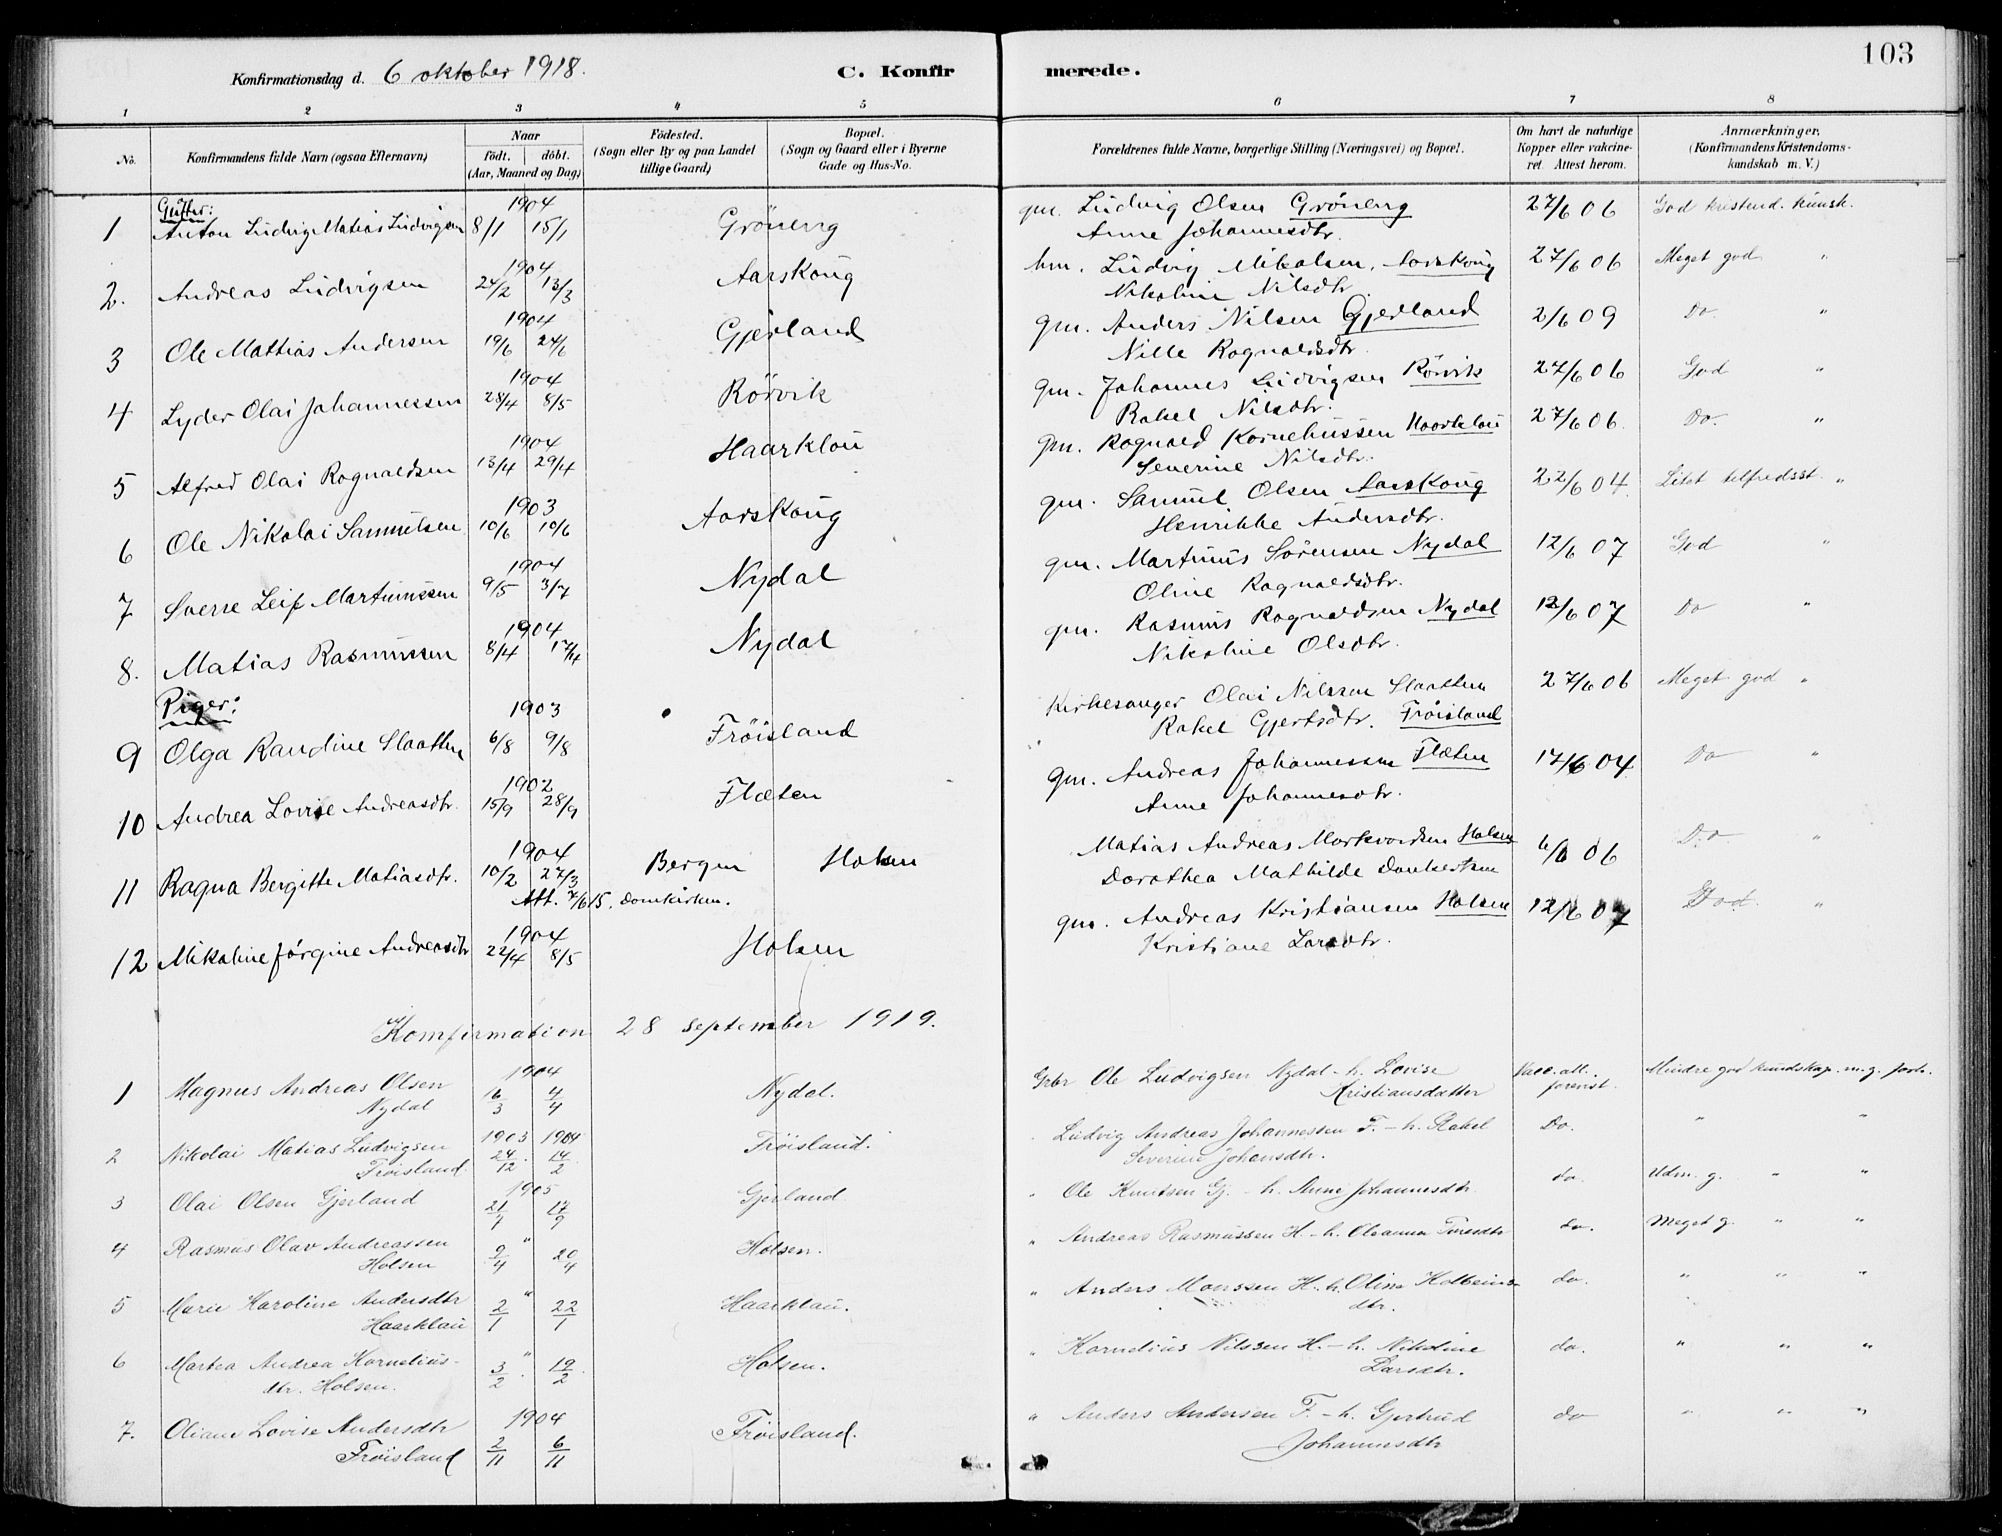 103
Konfirmationsdag d. 6 oktober 1918.
C. Konfirmerede.
1 2 3 4 5 6 7 8
No.
Konfirmandens fulde Navn (ogsaa Efternavn)
Naar
födt. döbt.
(Aar, Maaned og Dag)
Födested.
(Sogn eller By og paa Landet
tillige Gaard)
Bopæl.
(Sogn og Gaard eller i Byerne
Gade og Hus-No.
Forældrenes fulde Navne, borgerlige Stilling (Næringsvei) og Bopæl.
Om havt de naturlige
Kopper eller vakcine-
ret. Attest herom.
Anmærkninger,
(Konfirmandens Kristendoms-
kundskab m. V.)
Gutter:
1 Anton Ludvig Matias Ludvigsen 1904 8/1 15/1 Gröneng gm. Ludvig Olsen Gröneng 27/6 06 God kristend. kunsk.
Anne Johannesdtr.
2. Andreas Ludvigsen 1904 24/2 13/3 Aarskoug hm. Ludvig Mikalsen, Aarskoug 27/6 06 Meget god "
Nikoline Nilsdtr.
3 Ole Mattias Andersen 1904 19/6 24/6 Gjerland gm. Anders Nilsen Gjerland 2/6 09 Do. "
Nille Rognaldsdtr.
4 Lyder Olai Johannessen 1904 28/4 8/5 Rörvik gm. Johannes Ludvigsen Rörvik 27/6 06 God "
Rakel Nilsdtr.
5 Alfred Olai Rognaldsen 1904 13/4 29/4 Haarklou gm. Rognald Kornelìussen Haarklou 27/6 06. Do. "
Severine Nilsdtr.
6 Ole Nikolai Samuelsen 1903 10/6 10/6 Aarskoug gm. Samuel Olsen Aarskoug 22/6 04. Litet tilfredsst. "
Henrikke Andersdtr.
7 Sverre Leif Martinussen 1904 9/5 3/7 Nydal gm. Martinus Sörensen Nydal 12/6 07 God "
Oline Ragnaldsdtr.
8. Matias Rasmussen 1904 8/4 17/4 Nydal gm. Rasmus Rognaldsen Nydal 12/6 07 Do "
Nikoline Olsdtr.
Piger:
9 Olga Randine Slaatten 1903 6/8 9/8 Fröisland Kirkesanger Olai Nilssen Slaatten 27/6 06 Meget god "
Rakel Gjertsdtr. Fröisland
10 Andrea Lovise Andreasdtr. 1902 15/9 28/9 Flæten gm. Andreas Johannessen Flæten 17/6 04 Do "
Anne Johannesdtr.
11 Ragna Bergitte Matiasdtr. 1904 10/2 27/3 Bergen Holsen Matias Andreas Markvordsen Holsen 06 Do. "
Att. 7/6 15, Domkirken. Dorothea Mathilde Dankertsen
12 Mikaline Jörgine Andreasdtr 1904 22/4 8/5 Holsen gm. Andreas Kristiansen Holsen 12/6 07 God. "
Kristiane Larsdtr.
Komfirmation 28 september 1919.
1 Magnus Andreas Olsen 1904 16/3 4/4 Nydal. Gbr Ole Ludvigsen Nydal - h. Lovise Vacc. att. Mindre god kundskap. m. g. forh.
Nydal Kristiansdatter forevist.
2 Nikolai Matias Ludvigsen 1903 24/12. 1904 14/2 Fröisland. Ludvig Andreas Johannessen F. - h. Rakel Do. " "
Fröisland Severine Johansdtr.
3 Olai Olsen Gjerland 1905 21/7 17/9 Gjerland " Ole Knutsen Gj. - h. Anne Johannesdtr. do. Udm. g. " "
4 Rasmus Olav Andreassen " 9/4 20/4 Holsen. " Andreas Rasmussen H. - h. Oleanna do. Meget g. " "
Holsen
5 Marie Karoline Andersdtr " 2/1 22/1 Haarklau. " Anders Monssen H. - h. Oline Kolbeins- do. " " "
Haarklau dtr.
6 Martea Andrea Kornelius- " 3/2. 19/2 Holsen. " Kornelius Nilssen H. - h. Nikoline do. " " "
dtr. Holsen. Larsdtr.
7. Oliane Lovise Andersdtr 1904 2/11 6/11 Fröisland. " Anders Andersen F. - h. Gjertrud do " " "
Fröisland Johannesdtr